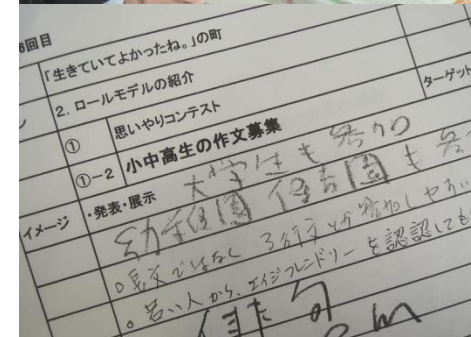 6回目
「生きていてよかったね。」の町
2. ロールモデルの紹介
ターゲット
① 思いやりコンテスト
①-2 小中高生の作文募集
大学生も参加
イメージ
・発表・展示
幼稚園 保育園も参
○長文ではなく 3行文とか 参加しやすい
○若い人から、エイジフレンドリーを認認しても
俳句